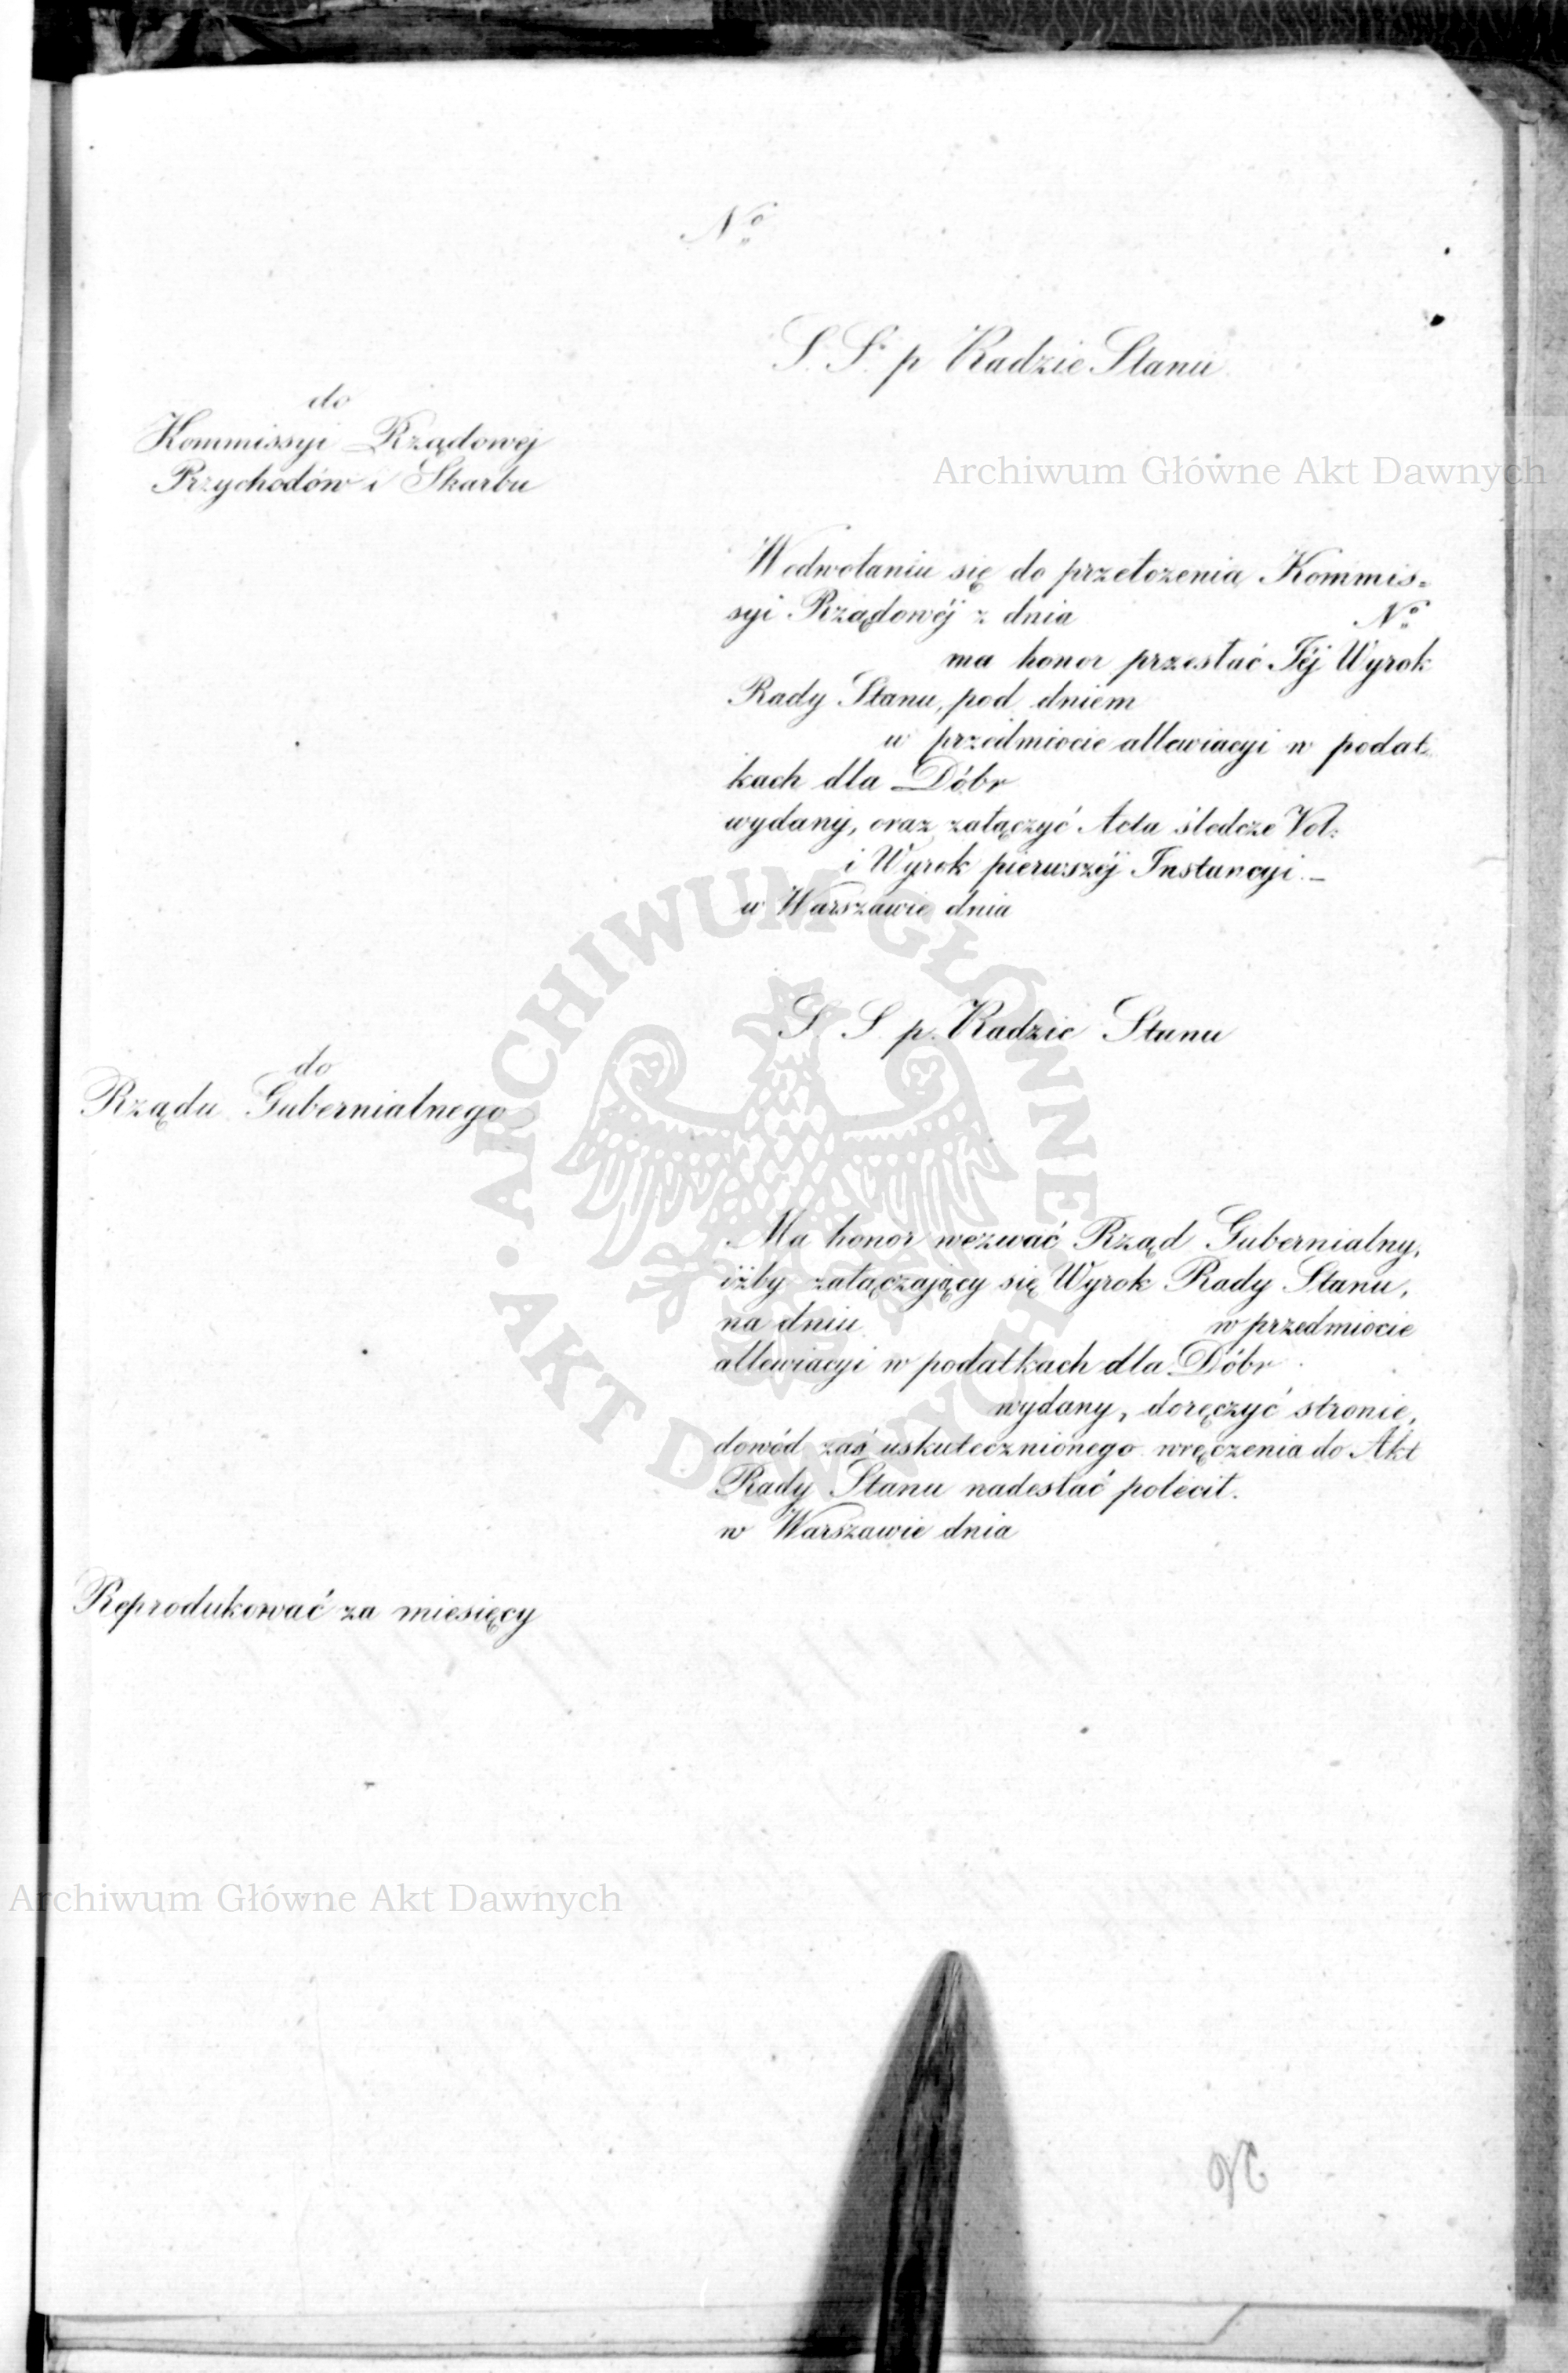 Nº
S. S. p Radzie Stanu
do
Kommissyi Rządowej
Przychodów i Skarbu
Archiwum Główne Akt Dawnych
W odwołaniu się do przełożenia Kommis=
syi Rządowéj z dnia Nº
ma honor przesłać Jéj Wyrok
Rady Stanu, pod dniem
w przedmiocie allewiacyi w podat=
kach dla Dóbr
wydany, oraz załączyć Acta śledcze Vol:
i Wyrok pierwszéj Instancyi. –
w Warszawie dnia
S. S. p. Radzie Stanu
do
Rządu Gubernialnego
ARCHIWUM GŁÓWNE • AKT DAWNYCH •
Ma honor wezwać Rząd Gubernialny,
iżby załączający się Wyrok Rady Stanu,
na dniu w przedmiocie
allewiacyi w podatkach dla Dóbr
wydany, doręczyć stronie,
dowód zaś uskutecznionego wręczenia do Akt
Rady Stanu nadesłać polécił.
w Warszawie dnia
Reprodukować za miesięcy
Archiwum Główne Akt Dawnych